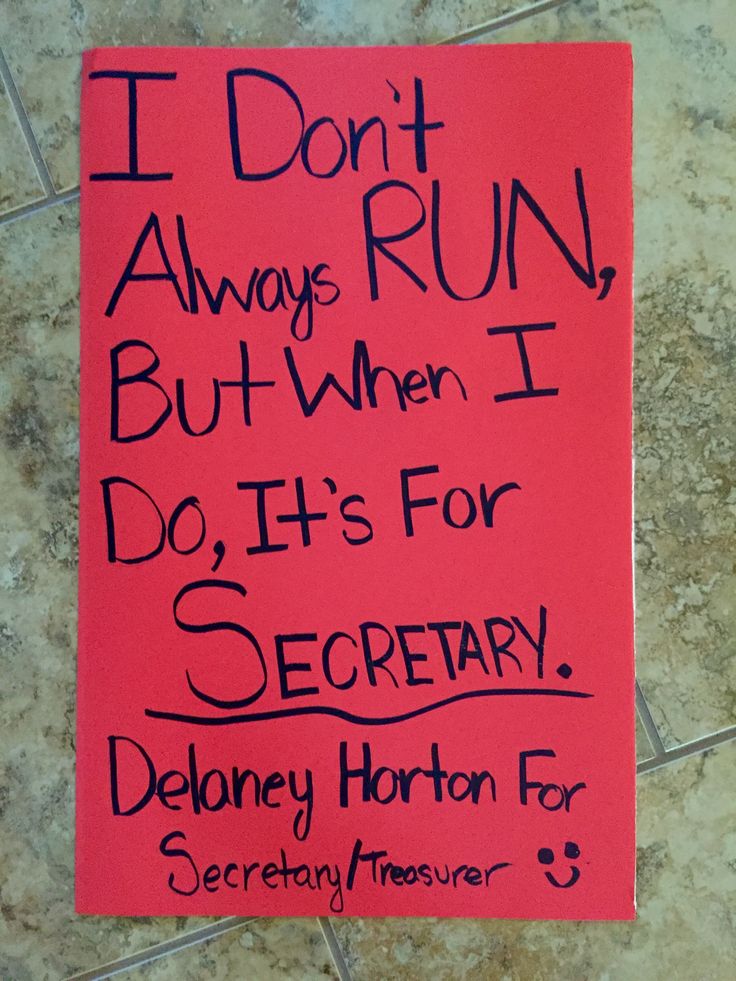 I Don't
Always RUN,
But When I
Do, It's For
SECRETARY.
Delaney Horton For
Secretary/Treasurer